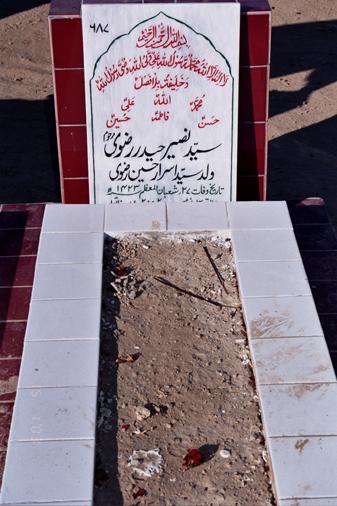 ۶۸۷
بسم اللہ الرحمن الرحیم
لا الہ الا اللہ محمد رسول اللہ علی ولی اللہ وصی رسول اللہ
وخلیفتہ بلا فصل
اللہ
محمدؐ علیؑ
فاطمہؑ
حسنؑ حسینؑ
سید نصیر حیدر رضوی
ولد سید اسرار حسین رضوی
تاریخ وفات ۲۷ شعبان المعظم ۱۴۲۳ھ